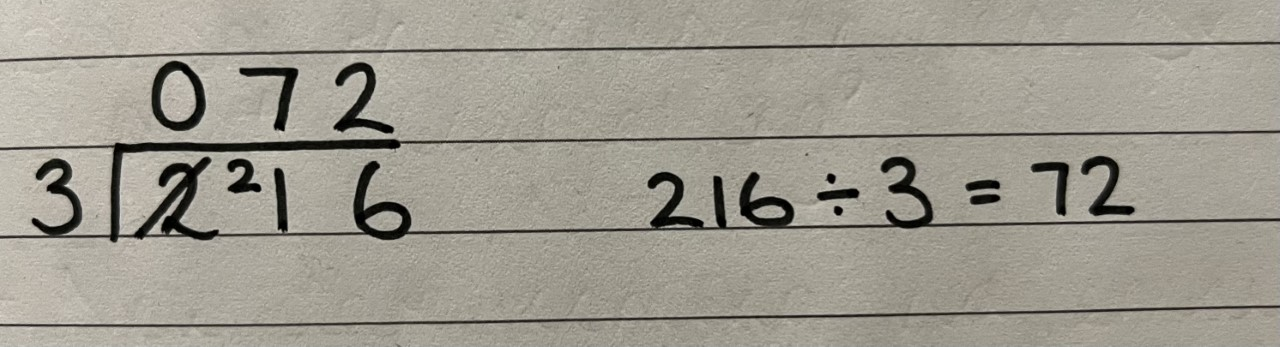 072
3 2 2 1 6
216 ÷ 3 = 72